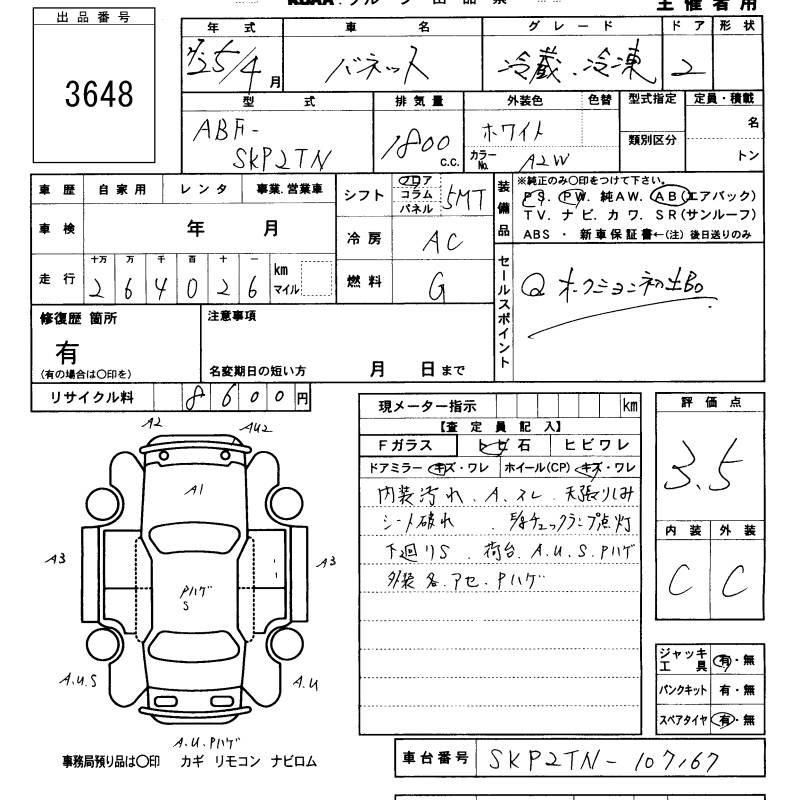 出品番号
3648
主催者用
年式 車名 グレード ドア 形状
25/4月 バネット 冷蔵・冷凍 2
型式 排気量 外装色 色替 型式指定 定員・積載
ABF-
SKP2TN
1800 c.c.
ホワイト
カラーNo. A2W
類別区分
名
トン
車歴 自家用 レンタ 事業.営業車
車検 年 月
走行 十万 万 千 百 十 一
2 6 4 0 2 6 km マイル
シフト フロア コラム パネル 5MT
冷房 AC
燃料 G
装備品
※純正のみ〇印をつけて下さい。
PS. PW. 純AW. AB(エアバック)
TV. ナビ. カワ. SR(サンルーフ)
ABS ・ 新車保証書←(注) 後日送りのみ
セールスポイント
修復歴 箇所
有
(有の場合は〇印を)
注意事項
名変期日の短い方 月 日まで
リサイクル料 8600円
現メーター指示 km
【査定員記入】
Fガラス トビ石 ヒビワレ
ドアミラー キズ・ワレ ホイール(CP) キズ・ワレ
内装汚れ . A. スレ . 天張りしみ
シート破れ . チェックランプ点灯
下廻りS . 荷台. A.U.S.Pハゲ
外装各. アセ. Pハゲ
評価点
3.5
内装 外装
C C
ジャッキ 工具 有・無
パンクキット 有・無
スペアタイヤ 有・無
A2 AU2
A1
A3 A3
Pハゲ
S
A.U.S A.U
A.U.Pハゲ
事務局預り品は〇印 カギ リモコン ナビロム
車台番号 SKP2TN-107167